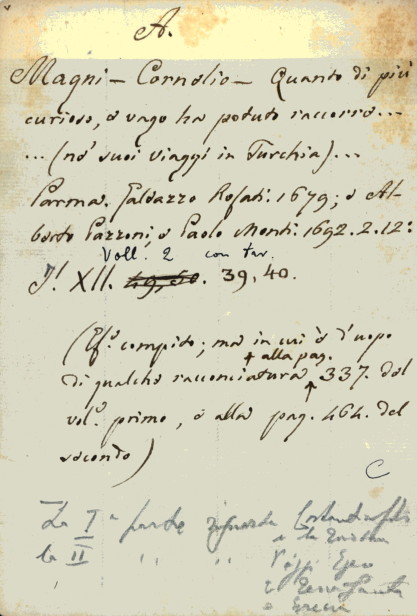 A.
Magni – Cornelio – Quanto di più
curioso, e vago ha potuto raccorre...
... (ne' suoi viaggi in Turchia)...
Parma. Galeazzo Rosati. 1679; e Al-
berto Pazzoni, e Paolo Monti. 1692. 2. 12:
Voll. 2 con tav.
XII. 49, 50. 39, 40.
(Es. compito; ma in cui è d'uopo
+ alla pag.
di qualche racconciatura 337. del
vol. primo, e alla pag. 464. del
secondo)
C
La I parte riguarda Costantinopoli
e la
la II " " Egeo
e Terra Santa
e Grecia